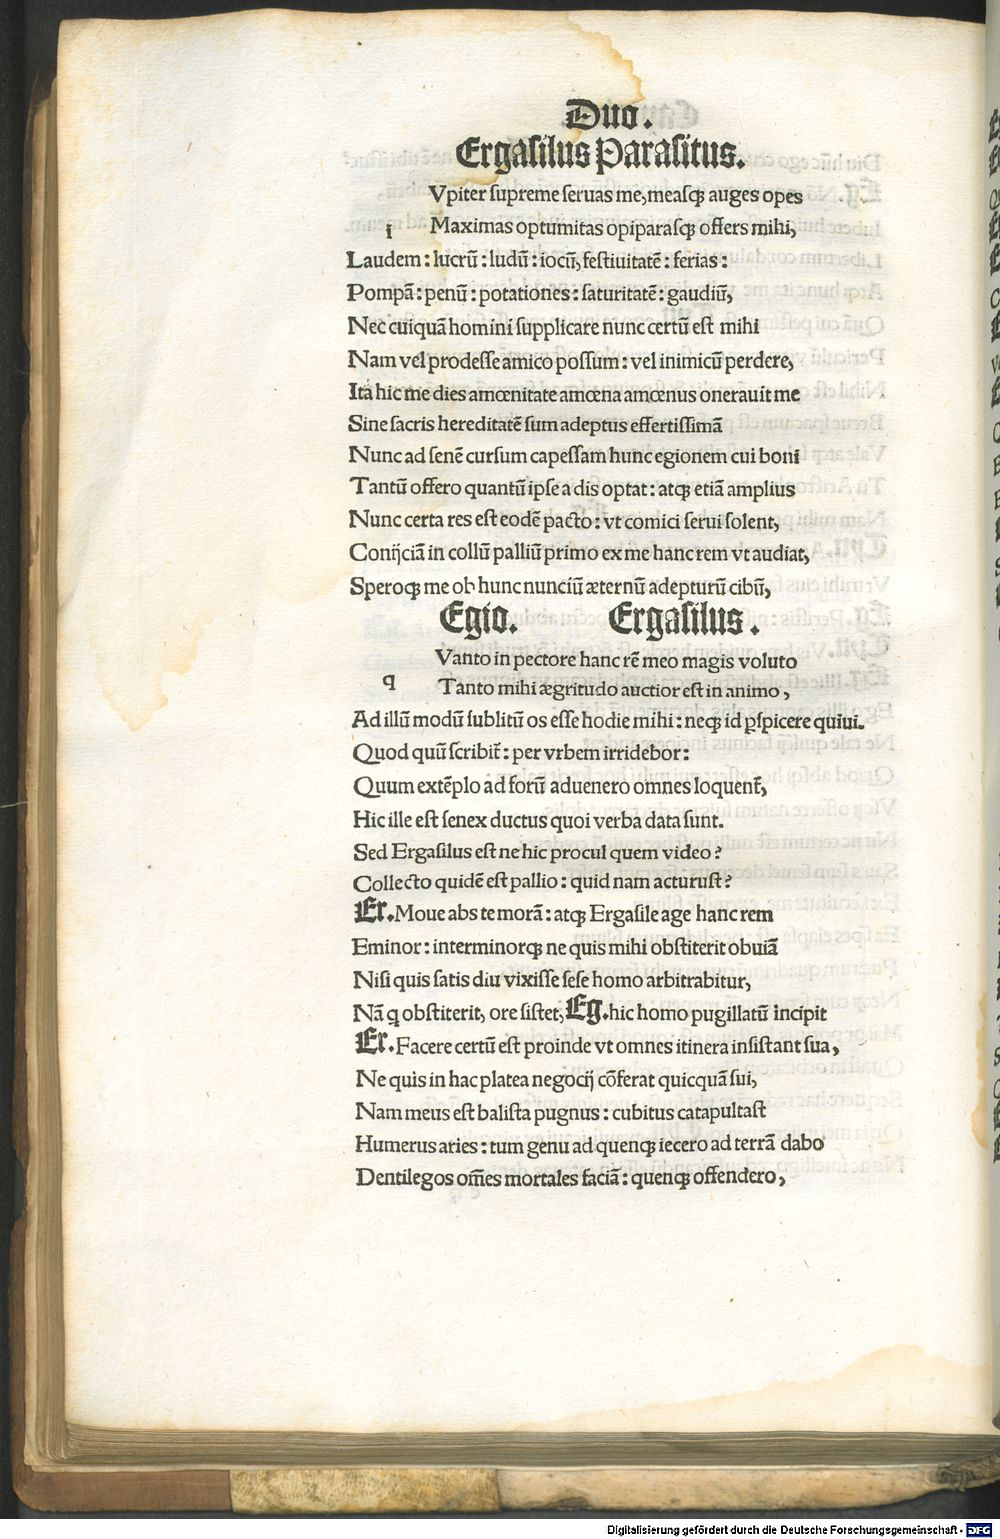 Duo.
Ergasilus Parasitus.
Vpiter supreme seruas me, measqꝫ auges opes
i Maximas optumitas opiparasqꝫ offers mihi,
Laudem: lucrū: ludū: iocū, festiuitatē: ferias:
Pompā: penū: potationes: saturitatē: gaudiū,
Nec cuiquā homini supplicare nunc certū est mihi
Nam vel prodesse amico possum: vel inimicū perdere,
Ita hic me dies amœnitate amœna amœnus onerauit me
Sine sacris hereditatē sum adeptus effertissimā
Nunc ad senē cursum capessam hunc egionem cui boni
Tantū offero quantū ipse a dis optat: atqꝫ etiā amplius
Nunc certa res est eodē pacto: vt comici serui solent,
Conijciā in collū palliū primo ex me hanc rem vt audiat,
Speroqꝫ me ob hunc nunciū æternū adepturū cibū,
Egio. Ergasilus.
Vanto in pectore hanc rē meo magis voluto
q Tanto mihi ægritudo auctior est in animo,
Ad illū modū sublitū os esse hodie mihi: neqꝫ id ꝑspicere quiui.
Quod quū scribit̄: per vrbem irridebor:
Quum extēplo ad forū aduenero omnes loquent̄,
Hic ille est senex ductus quoi verba data sunt.
Sed Ergasilus est ne hic procul quem video?
Collecto quidē est pallio: quid nam acturust?
Er. Moue abs te morā: atqꝫ Ergasile age hanc rem
Eminor: interminorqꝫ ne quis mihi obstiterit obuiā
Nisi quis satis diu vixisse sese homo arbitrabitur,
Nā q obstiterit, ore sistet, Eg. hic homo pugillatū incipit
Er. Facere certū est proinde vt omnes itinera insistant sua,
Ne quis in hac platea negocij cōferat quicquā sui,
Nam meus est balista pugnus: cubitus catapultast
Humerus aries: tum genu ad quenqꝫ iecero ad terrā dabo
Dentilegos om̄es mortales faciā: quenqꝫ offendero,
Digitalisierung gefördert durch die Deutsche Forschungsgemeinschaft - DFG